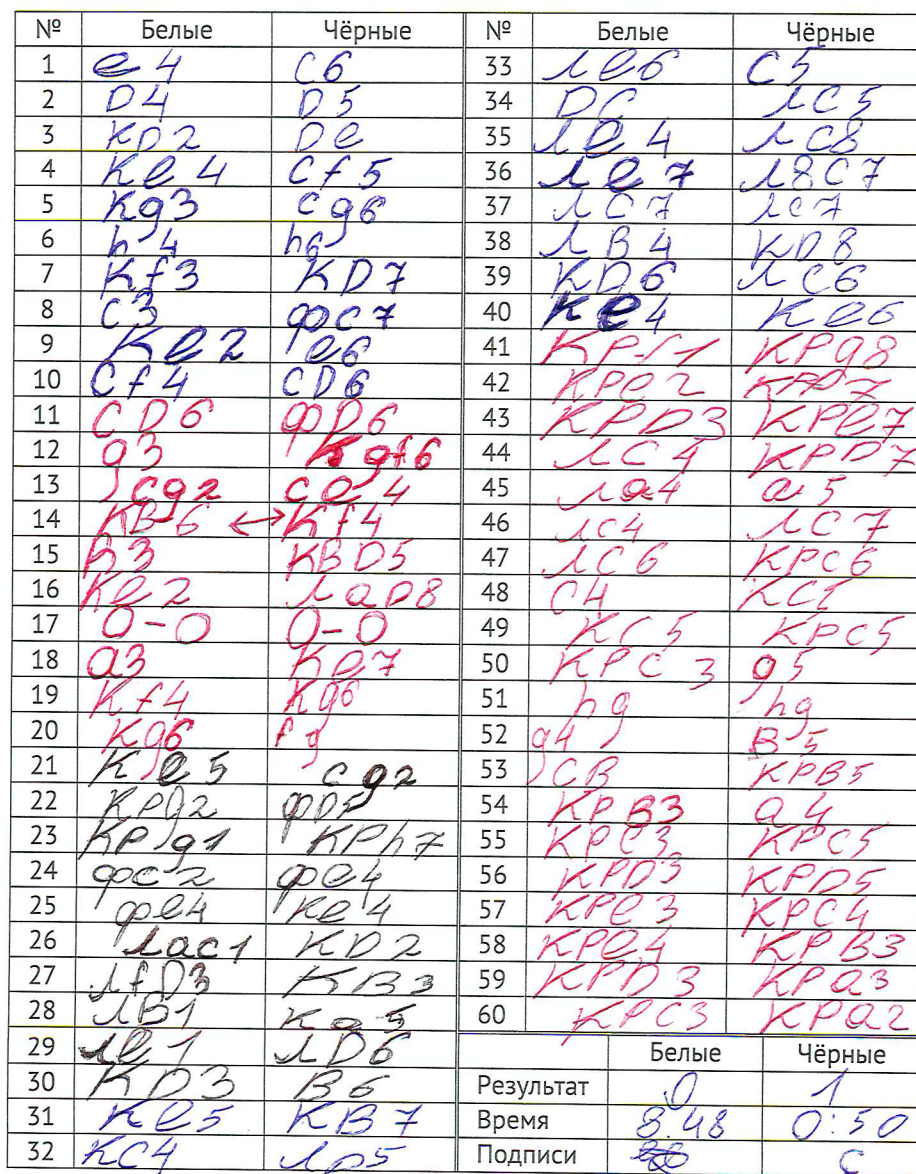 № Белые Чёрные
1 e4 c6
2 D4 D5
3 KD2 De
4 Ke4 Cf5
5 Kg3 Cg6
6 h4 h6
7 Kf3 KD7
8 C3 фc7
9 Ke2 e6
10 Cf4 CD6
11 CD6 фD6
12 g3 Kgf6
13 Cg2 Ce4
14 KB6 ↔ Kf4
15 B3 KBD5
16 Ke2 ЛaD8
17 O-O O-O
18 a3 Ke7
19 Kf4 Kg6
20 Kg6 fg
21 Ke5 Cg2
22 KPg2 фD5
23 KPg1 KPh7
24 фc2 фe4
25 фe4 Ke4
26 Лac1 KD2
27 ЛfD3 KB3
28 ЛB1 Ka5
29 Лe1 ЛD6
30 KD3 B6
31 Ke5 KB7
32 KC4 ЛD5
№ Белые Чёрные
33 Лe6 C5
34 DC ЛC5
35 Лe4 ЛC8
36 Лe7 Л8C7
37 ЛC7 ЛC7
38 ЛB4 KD8
39 KD6 ЛC6
40 Ke4 Ke6
41 KPf1 KPg8
42 KPe2 KPf7
43 KPD3 KPe7
44 ЛC4 KPD7
45 Лa4 a5
46 Лc4 ЛC7
47 ЛC6 KPC6
48 C4 KC5
49 KC5 KPC5
50 KPC3 g5
51 hg hg
52 g4 B5
53 CB KPB5
54 KPB3 a4
55 KPC3 KPC5
56 KPD3 KPD5
57 KPe3 KPC4
58 KPe4 KPB3
59 KPD3 KPa3
60 KPC3 KPa2
Белые Чёрные
Результат 0 1
Время 8:48 0:50
Подписи C